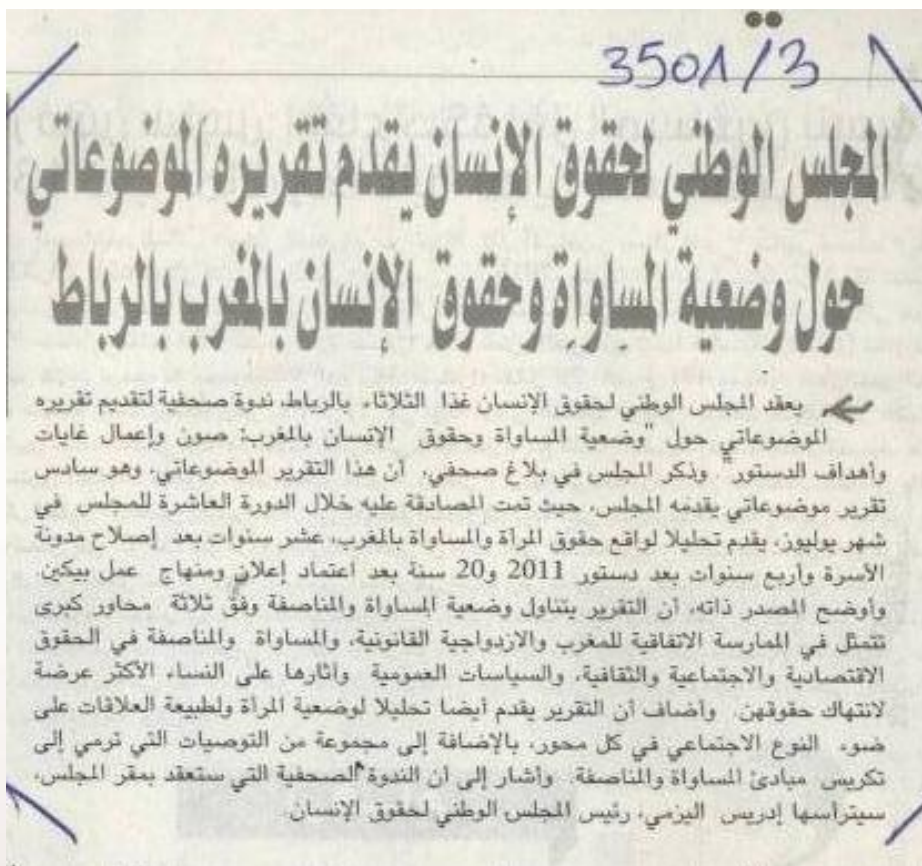 3501/3
المجلس الوطني لحقوق الإنسان يقدم تقريره الموضوعاتي
حول وضعية المساواة وحقوق الإنسان بالمغرب بالرباط
يعقد المجلس الوطني لحقوق الإنسان غدا الثلاثاء بالرباط، ندوة صحفية لتقديم تقريره
الموضوعاتي حول "وضعية المساواة وحقوق الإنسان بالمغرب: صون وإعمال غايات
وأهداف الدستور". وذكر المجلس في بلاغ صحفي، أن هذا التقرير الموضوعاتي، وهو سادس
تقرير موضوعاتي يقدمه المجلس، حيث تمت المصادقة عليه خلال الدورة العاشرة للمجلس في
شهر يوليوز، يقدم تحليلا لواقع حقوق المرأة والمساواة بالمغرب، عشر سنوات بعد إصلاح مدونة
الأسرة وأربع سنوات بعد دستور 2011 و20 سنة بعد اعتماد إعلان ومنهاج عمل بيكين.
وأوضح المصدر ذاته، أن التقرير يتناول وضعية المساواة والمناصفة وفق ثلاثة محاور كبرى
تتمثل في الممارسة الاتفاقية للمغرب والازدواجية القانونية، والمساواة والمناصفة في الحقوق
الاقتصادية والاجتماعية والثقافية، والسياسات العمومية وآثارها على النساء الأكثر عرضة
لانتهاك حقوقهن. وأضاف أن التقرير يقدم أيضا تحليلا لوضعية المرأة ولطبيعة العلاقات على
ضوء النوع الاجتماعي في كل محور، بالإضافة إلى مجموعة من التوصيات التي ترمي إلى
تكريس مبادئ المساواة والمناصفة. وأشار إلى أن الندوة الصحفية التي ستعقد بمقر المجلس،
سيترأسها إدريس اليزمي، رئيس المجلس الوطني لحقوق الإنسان.